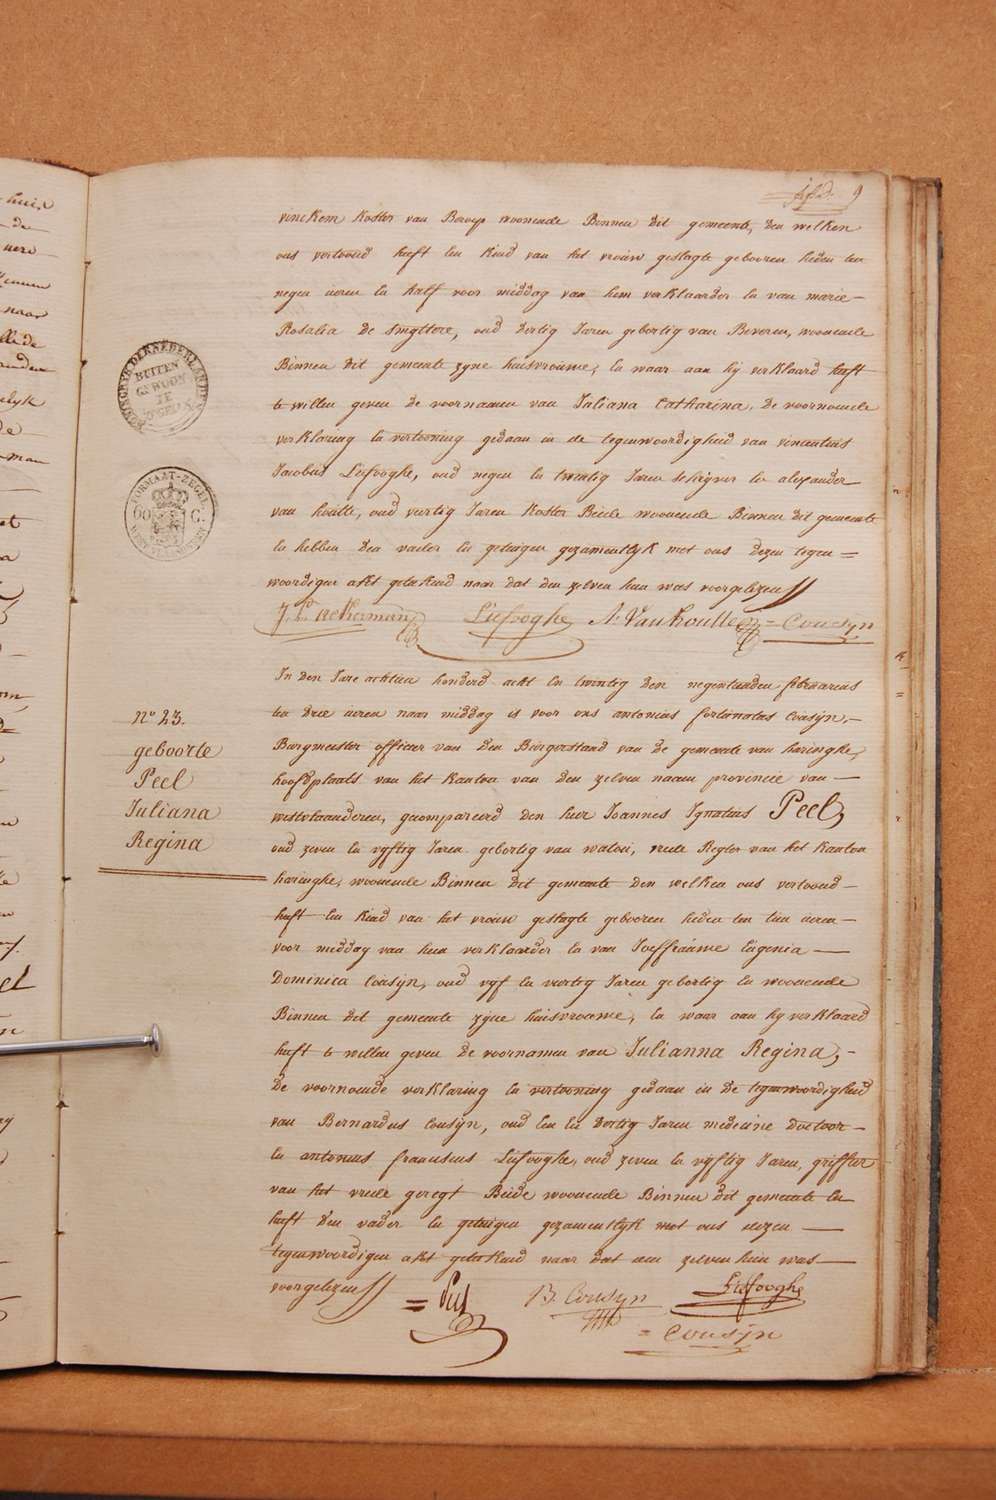 9
vinckem koster van Beroep woonende Binnen dit gemeente, den welken
ons vertoond heeft Een Kind van het vrouw geslagte gebooren heden ten
negen ueren En half voor middag van hem verklaarder En van marie
Rosalia De Smyttere, oud dertig Jaren gebortig van Beveren, woonende
Binnen dit gemeente zyne huisvrouwe, En waar aan hy verklaard heeft
te willen geven de voornamen van Juliana Catharina, De voornoemde
verklaring En vertooning gedaan in de tegenwoordigheid van vincentius
Jacobus Liefooghe, oud negen En twentig Jaren schryver En alexander
van houtte, oud veertig Jaren Koster Beide woonende Binnen dit gemeente
En hebben den vader En getuigen gezamentlyk met ons dezen tegen =
woordigen akt geteekend naar dat den zelven hun was voorgelezen
Ackerman Liefooghe A: Van houtte = Cousyn
KONINGRYK DER NEDERLANDEN
BUITEN
GEWOON
FORMAAT-ZEGEL
60 C.
WEST-VLAENDEREN
In den Jare achtien honderd acht En twintig den negentienden februarius
ten drie ueren naar middag is voor ons antonius fortunatus Cousyn,
Burgmeester officier van den Burgerstand van de gemeente van haringhe,
hoofdplaats van het kanton van den zelven naam provincie van
westvlaanderen, gecompareerd den heer Joannes Ignatius Peel,
oud zeven En vyftig Jaren gebortig van watou, vrede Regter van het kanton
haringhe, woonende Binnen dit gemeente den welken ons vertoond
heeft Een kind van het vrouw geslagte gebooren heden ten tien ueren
voor middag van hem verklaarder En van Joeffrauwe Eugenia
Dominica Cousyn, oud vyf En veertig Jaren gebortig En woonende
Binnen dit gemeente zyne huisvrouwe, En waar aan hy verklaard
heeft te willen geven de voornamen van Julianna Regina,
De voornoemde verklaring En vertooning gedaan in de tegenwoordigheid
van Bernardus Cousyn, oud Een En dertig Jaren medecine Doctoor
En antonius franciscus Liefooghe, oud zeven En vyftig Jaren, griffier
van het vrede geregt Beide woonende Binnen dit gemeente En
heeft den vader En getuigen gezamentlyk met ons dezen
tegenwoordigen akt geteekend naar dat den zelven hun was
voorgelezen
n° 23.
geboorte
Peel
Juliana
Regina
= Peel B. Cousyn Liefooghe
= Cousyn